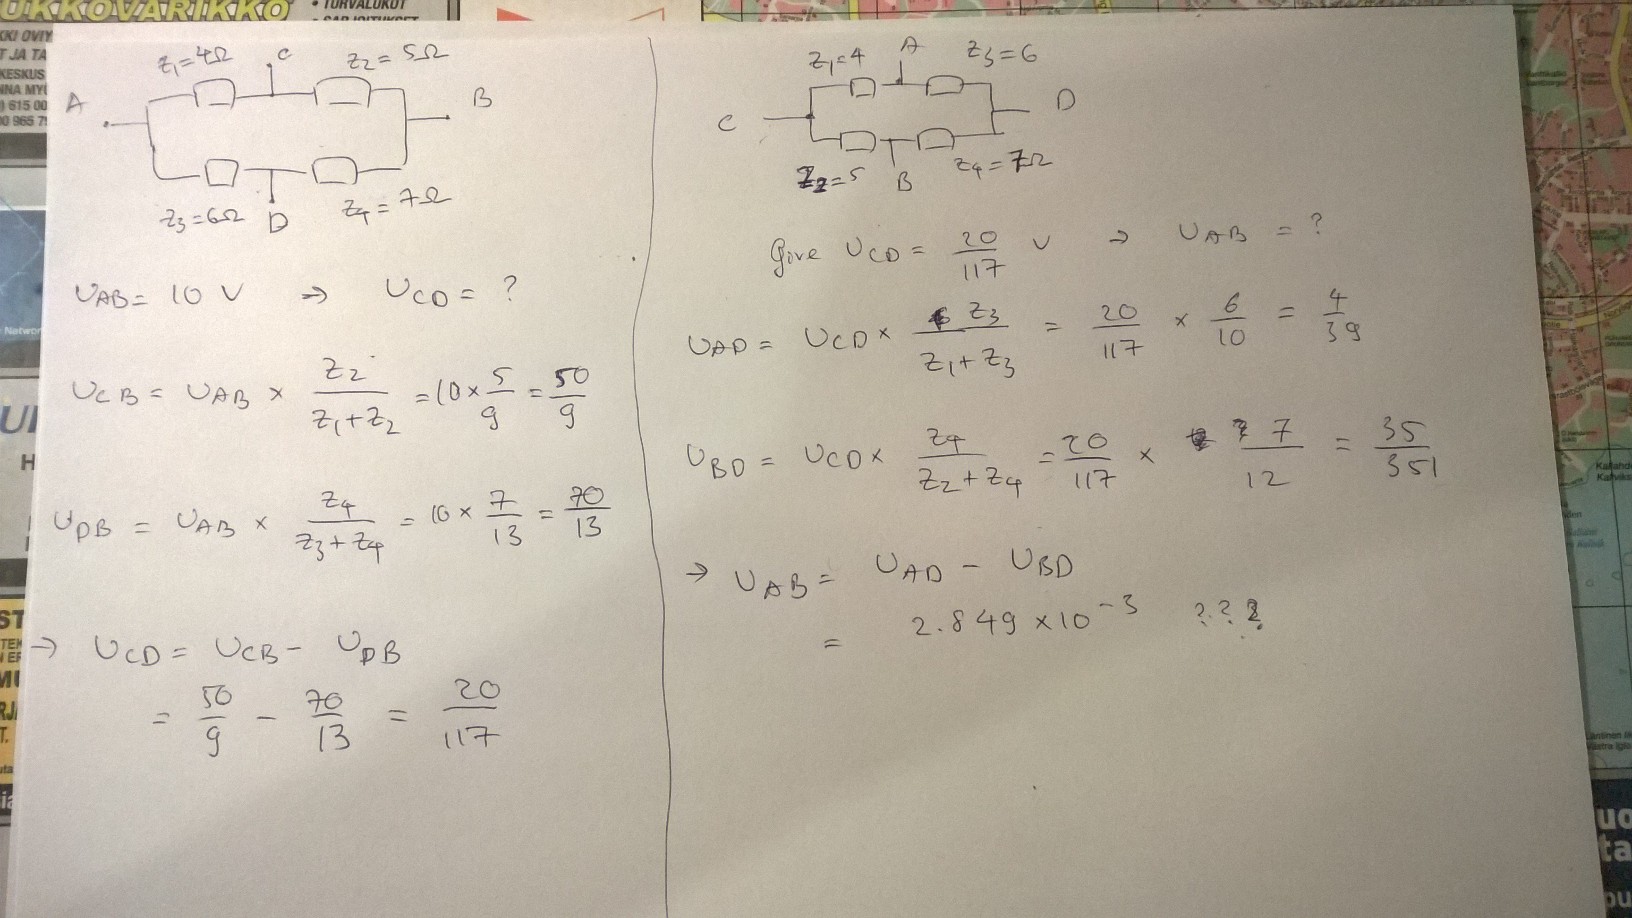 UKKOVARIKKO
• TURVALUKOT
• SARJOITUKSET
KKI OVIY
T JA TA
KESKUS
) 615 00
00 965 7
Z₁=4Ω
C
Z₂=5Ω
A
B
Z₃=6Ω
D
Z₄=7Ω
U_AB= 10 V → U_CD= ?
U_CB = U_AB × Z₂/(Z₁+Z₂) = 10 × 5/9 = 50/9
U_DB = U_AB × Z₄/(Z₃+Z₄) = 10 × 7/13 = 70/13
→ U_CD = U_CB - U_DB
= 50/9 - 70/13 = 20/117
Z₁=4
A
Z₃=6
C
D
Z₂=5
B
Z₄=7Ω
Give U_CD = 20/117 V → U_AB = ?
U_AD = U_CD × Z₃/(Z₁+Z₃) = 20/117 × 6/10 = 4/39
U_BD = U_CD × Z₄/(Z₂+Z₄) = 20/117 × 7/12 = 35/351
→ U_AB = U_AD - U_BD
= 2.849 × 10⁻³ ???
Networ